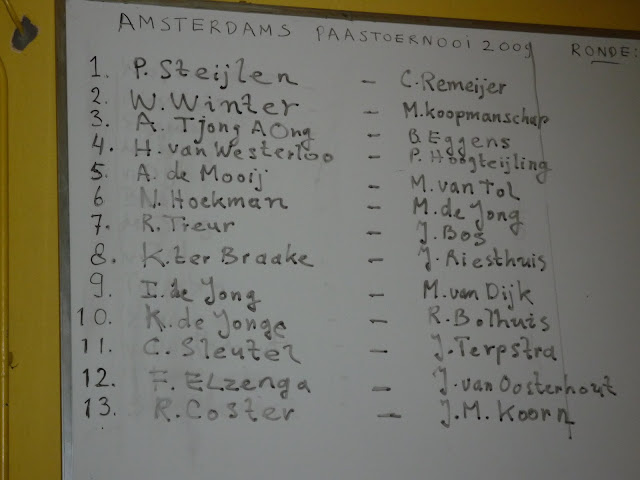 AMSTERDAMS PAASTOERNOOI 2009 RONDE:
1. P. Steijlen - C. Remeijer
2. W. Winter - M. koopmanschap
3. A. Tjong AOng - B. Eggens
4. H. van Westerloo - P. Hoogteijling
5. A. de Mooij - M. van Tol
6 N. Hoekman - M. de Jong
7. R. Treur - J. Bos
8. K. ter Braake - J. Riesthuis
9. I. de Jong - M. van Dijk
10. K. de Jonge - R. Bolhuis
11. C. Sleutel - J. Terpstra
12. F. ELzenga - J. van Oosterhout
13. R. Coster - J. M. Koorn